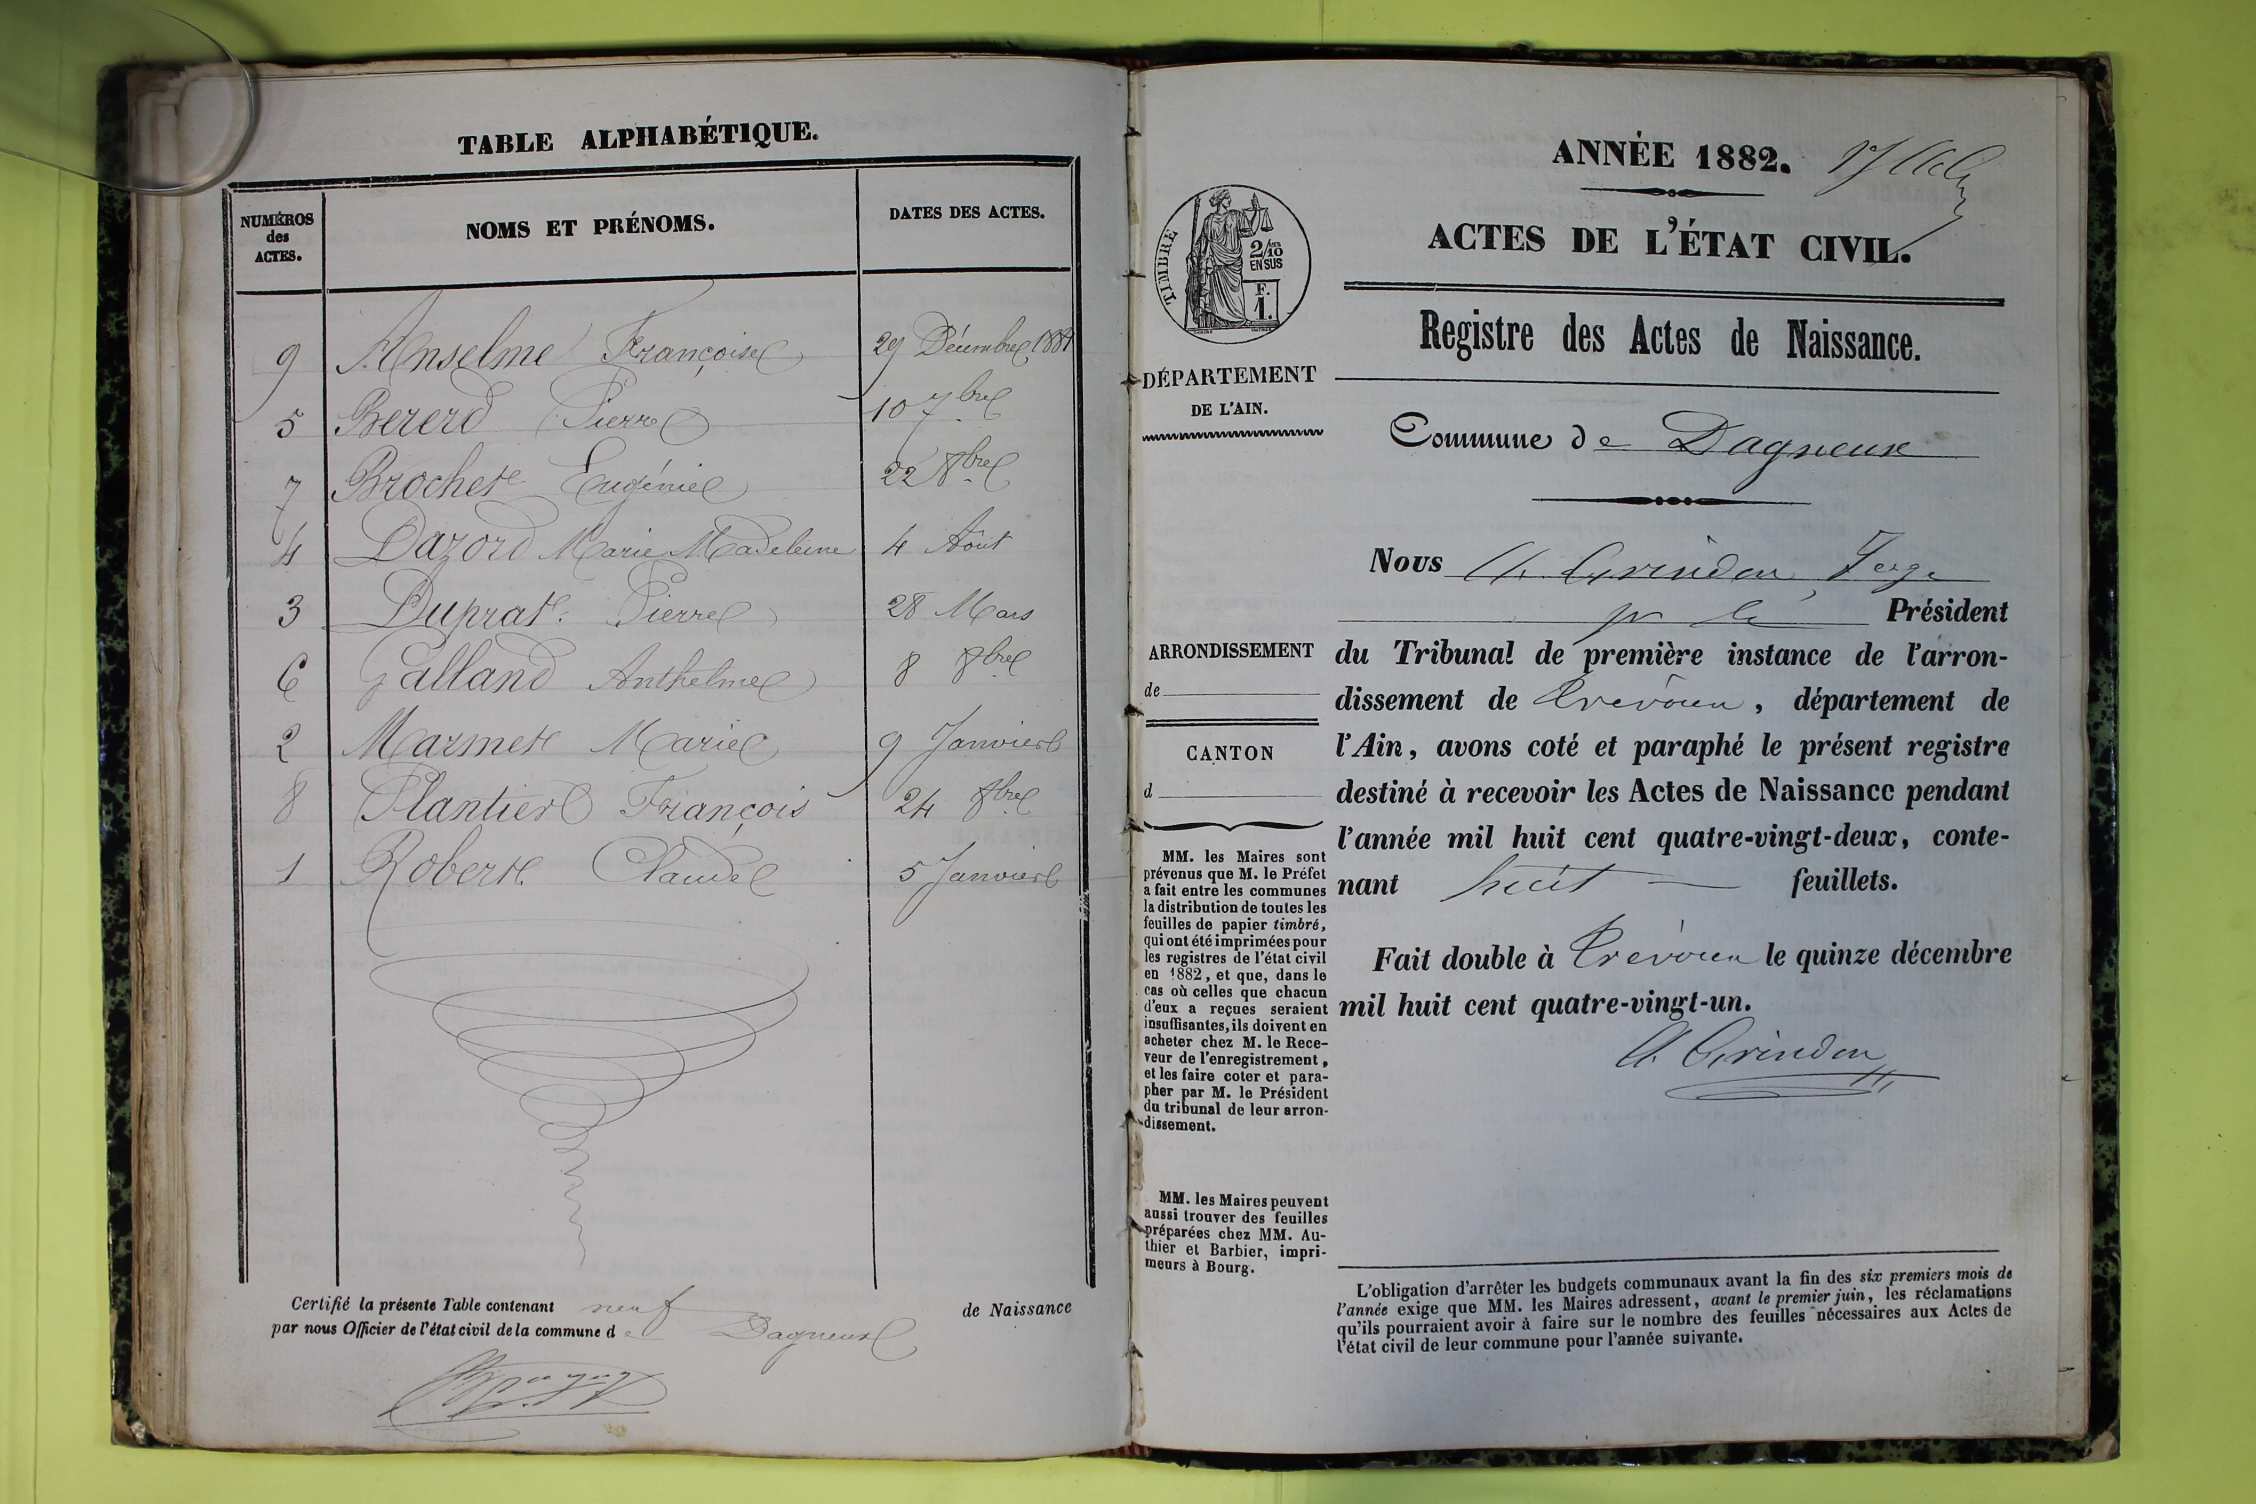 TABLE ALPHABÉTIQUE.
NUMÉROS des ACTES. NOMS ET PRÉNOMS. DATES DES ACTES.
9 Anselme Françoise 29 Décembre 1881
5 Bererd Pierre 10 7bre
7 Brochet Eugénie 22 8bre
4 Dazord Marie Madeleine 4 Août
3 Duprat Pierre 28 Mars
6 Galland Anthelme 8 8bre
2 Marmet Marie 9 Janvier
8 Plantier François 24 8bre
1 Robert Claude 5 Janvier
Certifié la présente Table contenant neuf de Naissance
par nous Officier de l'état civil de la commune de Dagneux
ANNÉE 1882.
ACTES DE L'ÉTAT CIVIL.
TIMBRE
2/10 ES
EN SUS
F.
1.
Registre des Actes de Naissance.
DÉPARTEMENT
DE L'AIN.
Commune de Dagneux
Nous A. Grindon, Juge
pr le Président
ARRONDISSEMENT
de
CANTON
d
du Tribunal de première instance de l'arron-
dissement de Trévoux, département de
l'Ain, avons coté et paraphé le présent registre
destiné à recevoir les Actes de Naissance pendant
l'année mil huit cent quatre-vingt-deux, conte-
nant huit feuillets.
Fait double à Trévoux le quinze décembre
mil huit cent quatre-vingt-un.
A. Grindon
MM. les Maires sont
prévenus que M. le Préfet
a fait entre les communes
la distribution de toutes les
feuilles de papier timbré,
qui ont été imprimées pour
les registres de l'état civil
en 1882, et que, dans le
cas où celles que chacun
d'eux a reçues seraient
insuffisantes, ils doivent en
acheter chez M. le Rece-
veur de l'enregistrement,
et les faire coter et para-
pher par M. le Président
du tribunal de leur arron-
dissement.
MM. les Maires peuvent
aussi trouver des feuilles
préparées chez MM. Au-
thier et Barbier, impri-
meurs à Bourg.
L'obligation d'arrêter les budgets communaux avant la fin des six premiers mois de
l'année exige que MM. les Maires adressent, avant le premier juin, les réclamations
qu'ils pourraient avoir à faire sur le nombre des feuilles nécessaires aux Actes de
l'état civil de leur commune pour l'année suivante.